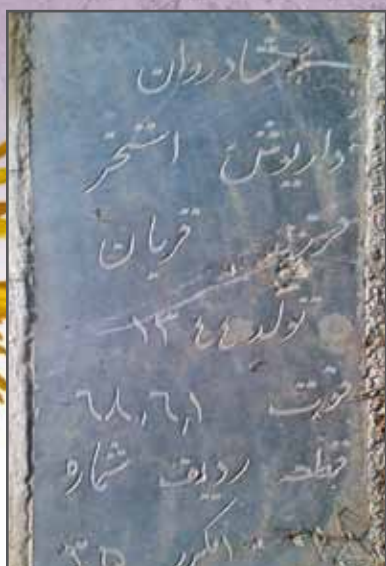 شادروان
داریوش استخر
فرزند قربان
تولد ۱۳۴۴
فوت ۶۸٫۶٫۱
قطعه ردیف شماره